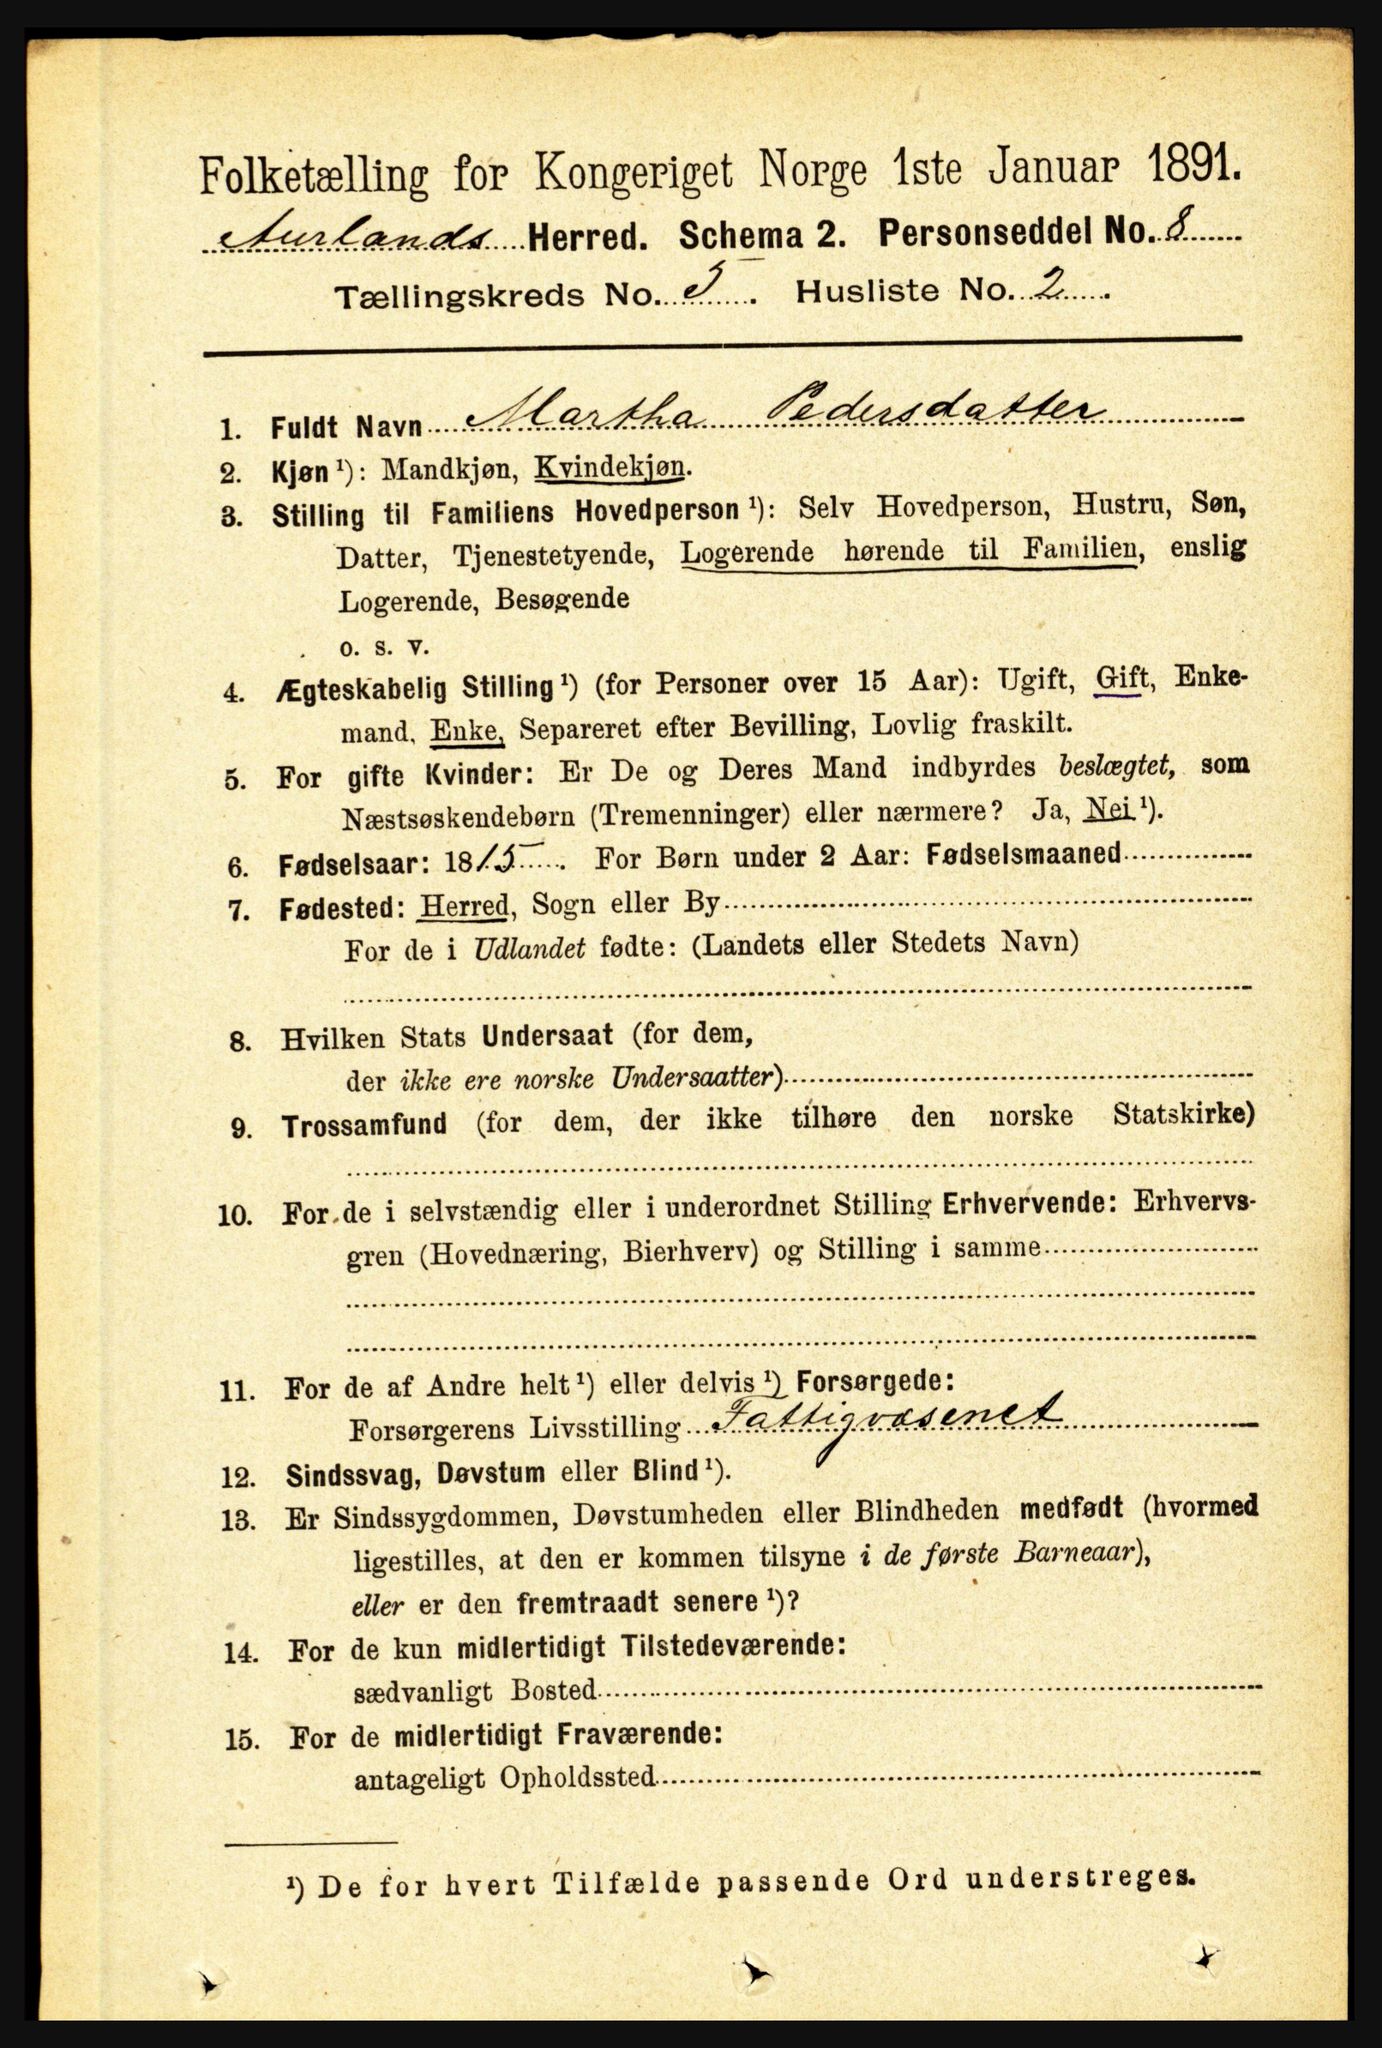 Folketælling for Kongeriget Norge 1ste Januar 1891.
Aurlands Herred. Schema 2. Personseddel No. 8
Tællingskreds No. 5. Husliste No. 2.
1. Fuldt Navn Martha Pedersdatter
2. Kjøn ¹): Mandkjøn, Kvindekjøn.
3. Stilling til Familiens Hovedperson ¹): Selv Hovedperson, Hustru, Søn,
Datter, Tjenestetyende, Logerende hørende til Familien, enslig
Logerende, Besøgende
o. s. v.
4. Ægteskabelig Stilling ¹) (for Personer over 15 Aar): Ugift, Gift, Enke-
mand, Enke, Separeret efter Bevilling, Lovlig fraskilt.
5. For gifte Kvinder: Er De og Deres Mand indbyrdes beslægtet, som
Næstsøskendebørn (Tremenninger) eller nærmere? Ja, Nei ¹).
6. Fødselsaar: 1815. For Børn under 2 Aar: Fødselsmaaned
7. Fødested: Herred, Sogn eller By
For de i Udlandet fødte: (Landets eller Stedets Navn)
8. Hvilken Stats Undersaat (for dem,
der ikke ere norske Undersaatter)
9. Trossamfund (for dem, der ikke tilhøre den norske Statskirke)
10. For de i selvstændig eller i underordnet Stilling Erhvervende: Erhvervs-
gren (Hovednæring, Bierhverv) og Stilling i samme
11. For de af Andre helt ¹) eller delvis ¹) Forsørgede:
Forsørgerens Livsstilling Fattigvæsenet
12. Sindssvag, Døvstum eller Blind ¹).
13. Er Sindssygdommen, Døvstumheden eller Blindheden medfødt (hvormed
ligestilles, at den er kommen tilsyne i de første Barneaar),
eller er den fremtraadt senere ¹)?
14. For de kun midlertidigt Tilstedeværende:
sædvanligt Bosted
15. For de midlertidigt Fraværende:
antageligt Opholdssted
¹) De for hvert Tilfælde passende Ord understreges.